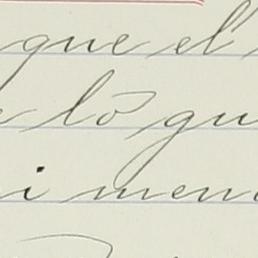 que el
lo qu
i men